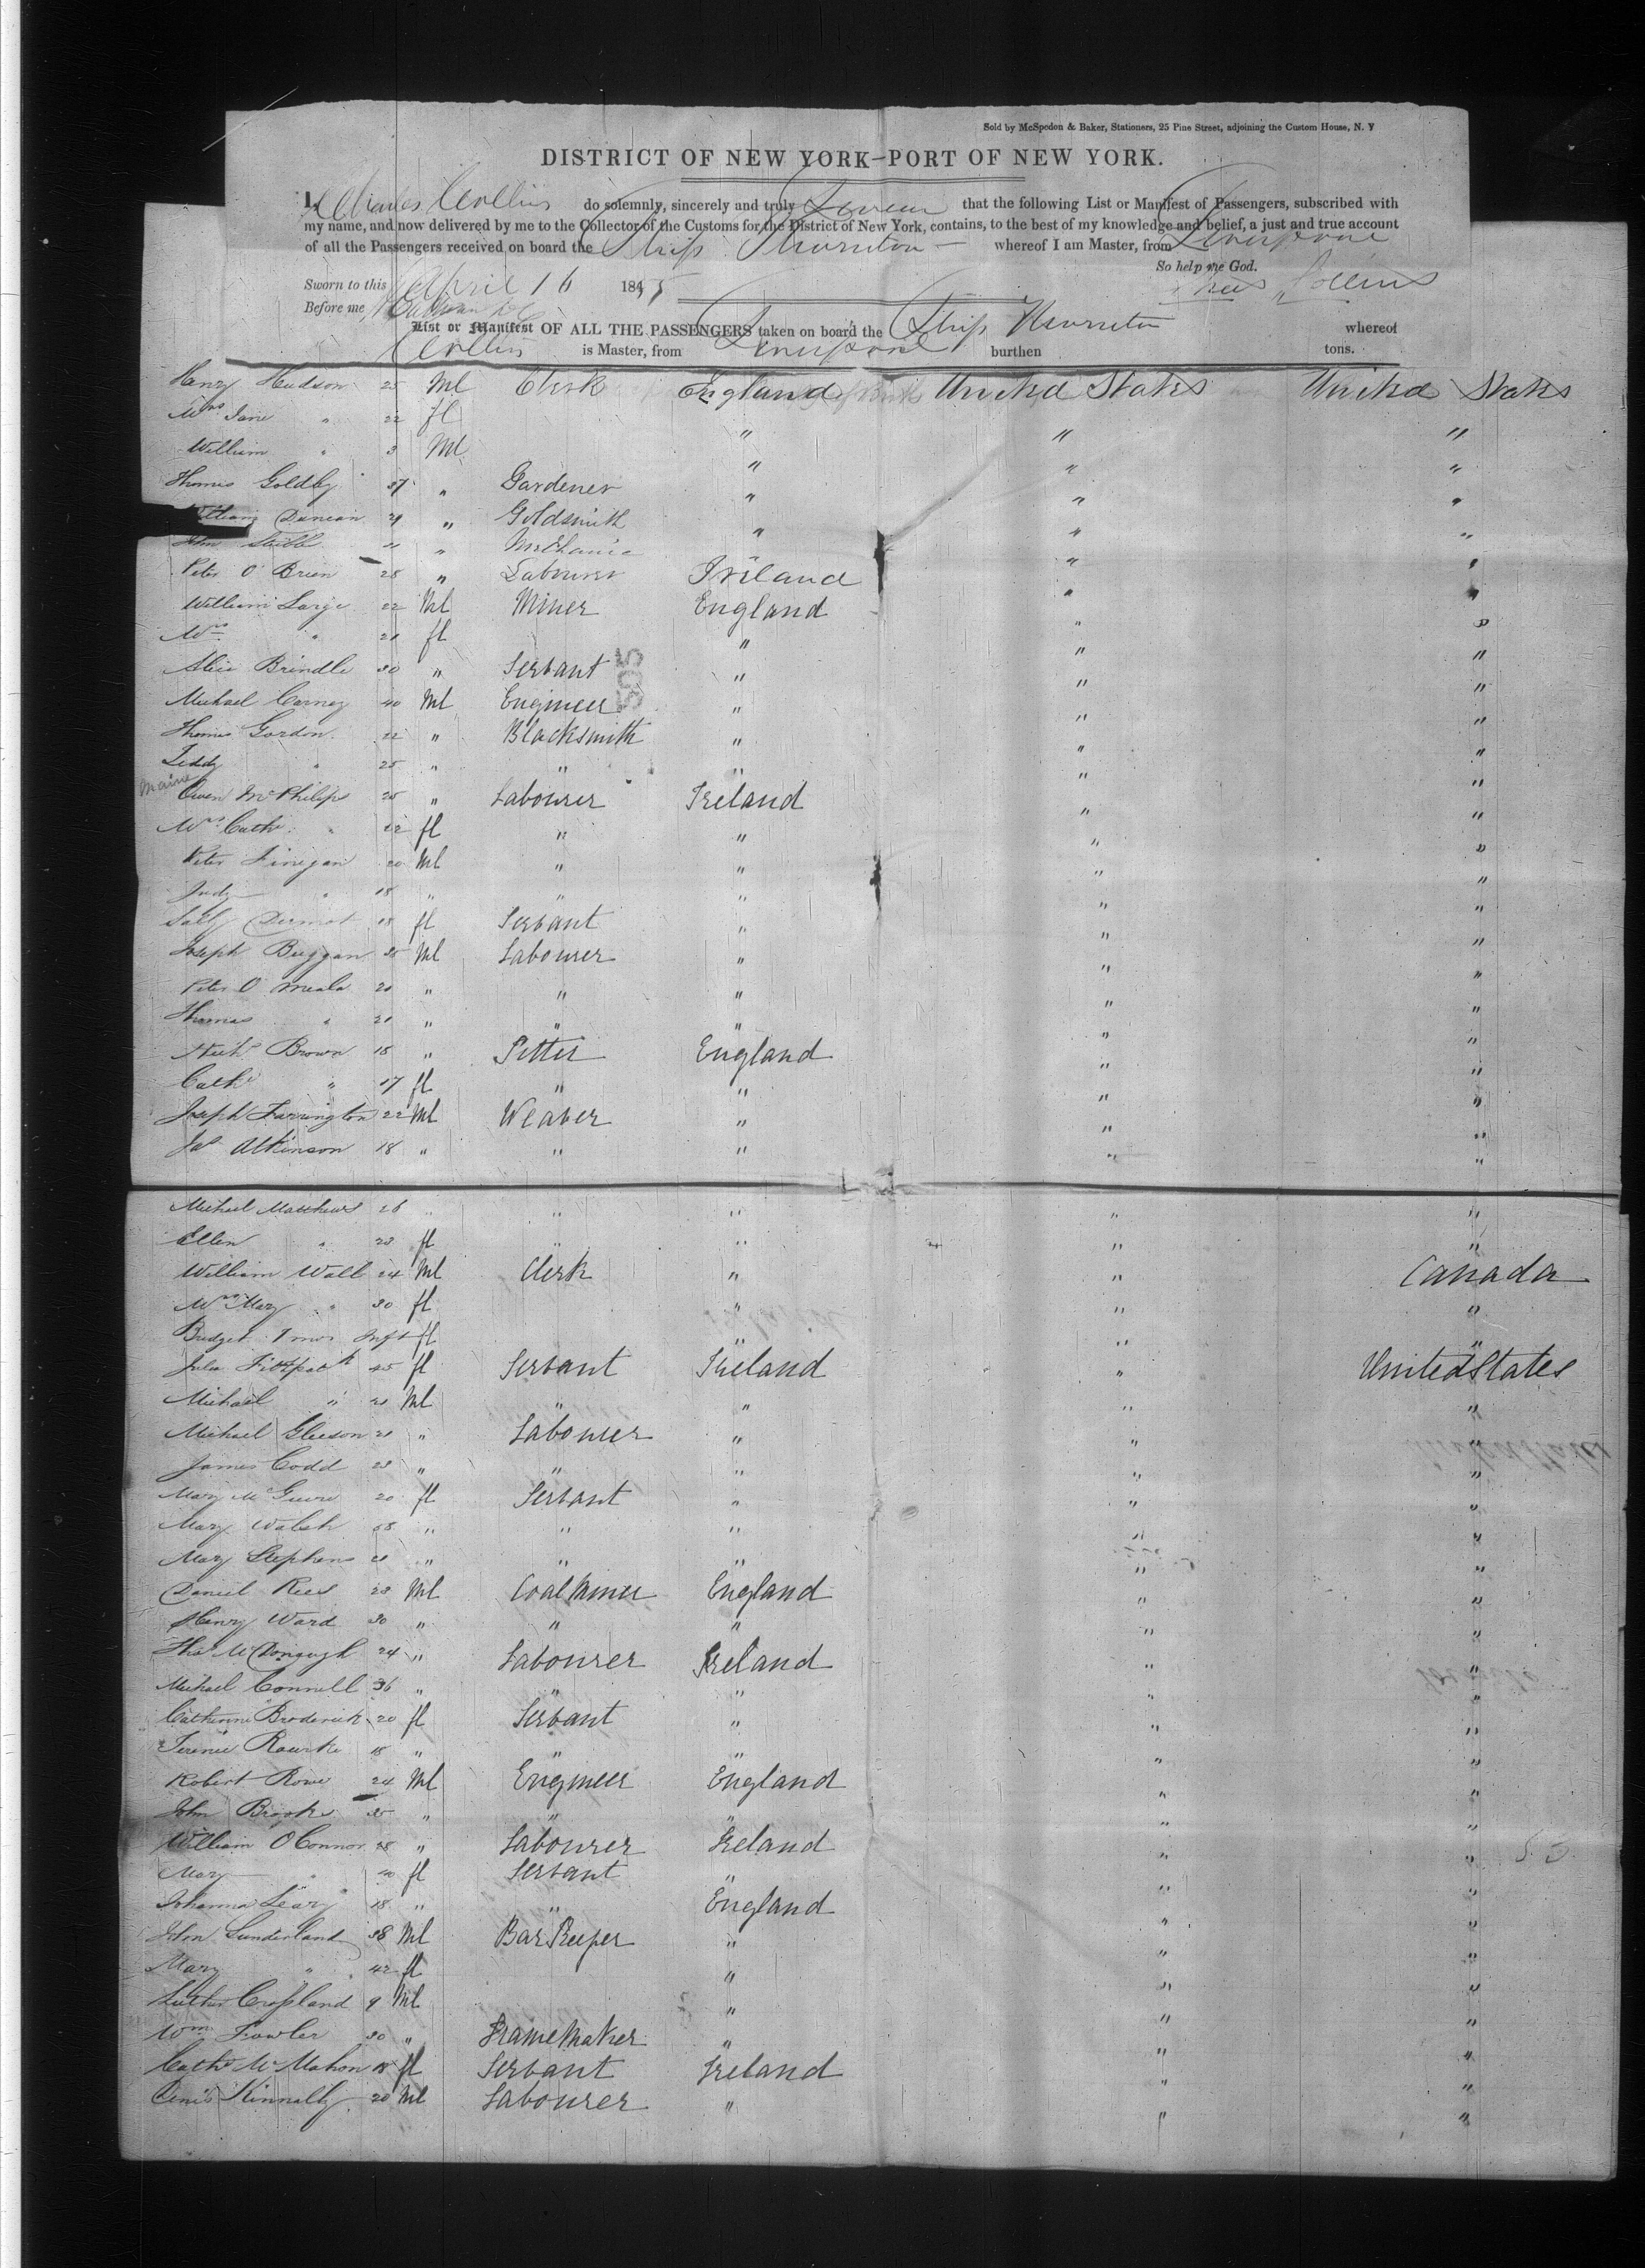 Sold by McSpedon & Baker, Stationers, 25 Pine Street, adjoining the Custom House, N. Y
DISTRICT OF NEW YORK—PORT OF NEW YORK.
I, Charles Collins do solemnly, sincerely and truly Swear that the following List or Manifest of Passengers, subscribed with
my name, and now delivered by me to the Collector of the Customs for the District of New York, contains, to the best of my knowledge and belief, a just and true account
of all the Passengers received on board the Ship Thornton whereof I am Master, from Liverpool
So help me God.
Sworn to this April 16 1855 Chas Collins
Before me,
List or Manifest OF ALL THE PASSENGERS taken on board the Ship Thornton whereof
Collins is Master, from Liverpool burthen tons.
Henry Hudson 25 Ml Clerk England United States United States
Mrs Jane " 22 fl " " "
William " 3 Ml " " "
Thomas Goldby 37 " Gardener " " "
William Duncan 29 " Goldsmith " " "
John Stibb " " Mechanic " "
Peter O Brien 28 " Labourer Ireland " "
William Large 22 Ml Miner England " "
Mrs " 21 fl " " "
Alice Brindle 30 " Servant " " "
Michael Carney 40 Ml Engineer " " "
Thomas Gordon 22 " Blacksmith " " "
Teddy " 25 " " " " "
Owen McPhilips 25 " Labourer Ireland " "
Mrs Cath " 22 fl " " " "
Peter Finegan 20 Ml " " " "
Judy " 18 " " " " "
Sally Dermot 18 fl Servant " " "
Joseph Buggan 35 Ml Labourer " " "
Peter O Meala 20 " " " " "
Thomas " 21 " " " " "
Brown 18 " England " "
Cath " 17 fl " " " "
Joseph Farrington 22 Ml Weaver " " "
Jas Atkinson 18 " " " " "
Michael Matthews 26 " " " " "
Ellen " 23 fl " " " "
William Wall 24 Ml Clerk " " Canada
Mrs Mary " 30 fl " " "
Bridget 7 mos Inft fl " " "
Julia Fitzpatk 45 fl Servant Ireland " United States
Michael " 21 Ml " " " "
Michael Gleeson 21 " Labourer " " "
James Codd 23 " " " " "
Mary McGuire 20 fl Servant " " "
Mary Walsh 58 " " " " "
Mary Stephens 21 " " " " "
Daniel Rees 28 Ml Coal Miner England " "
Henry Ward 30 " " " " "
Thos McDonough 24 " Labourer Ireland " "
Michael Connell 36 " " " " "
Catherine Broderick 20 fl Servant " " "
Rourke 18 " " " " "
Robert Rowe 24 Ml Engineer England " "
John Brooks 35 " " " " "
William O'Connor 28 " Labourer Ireland " "
Mary " 20 fl Servant " " "
Johanna Leary 18 " " England " "
John Sunderland 38 Ml Bar Keeper " " "
Mary " 42 fl " " "
Luther Crossland 9 Ml " " "
Wm Fowler 30 " Frame Maker " " "
Cath McMahon 18 fl Servant Ireland " "
Denis Kinnally 20 Ml Labourer " " "